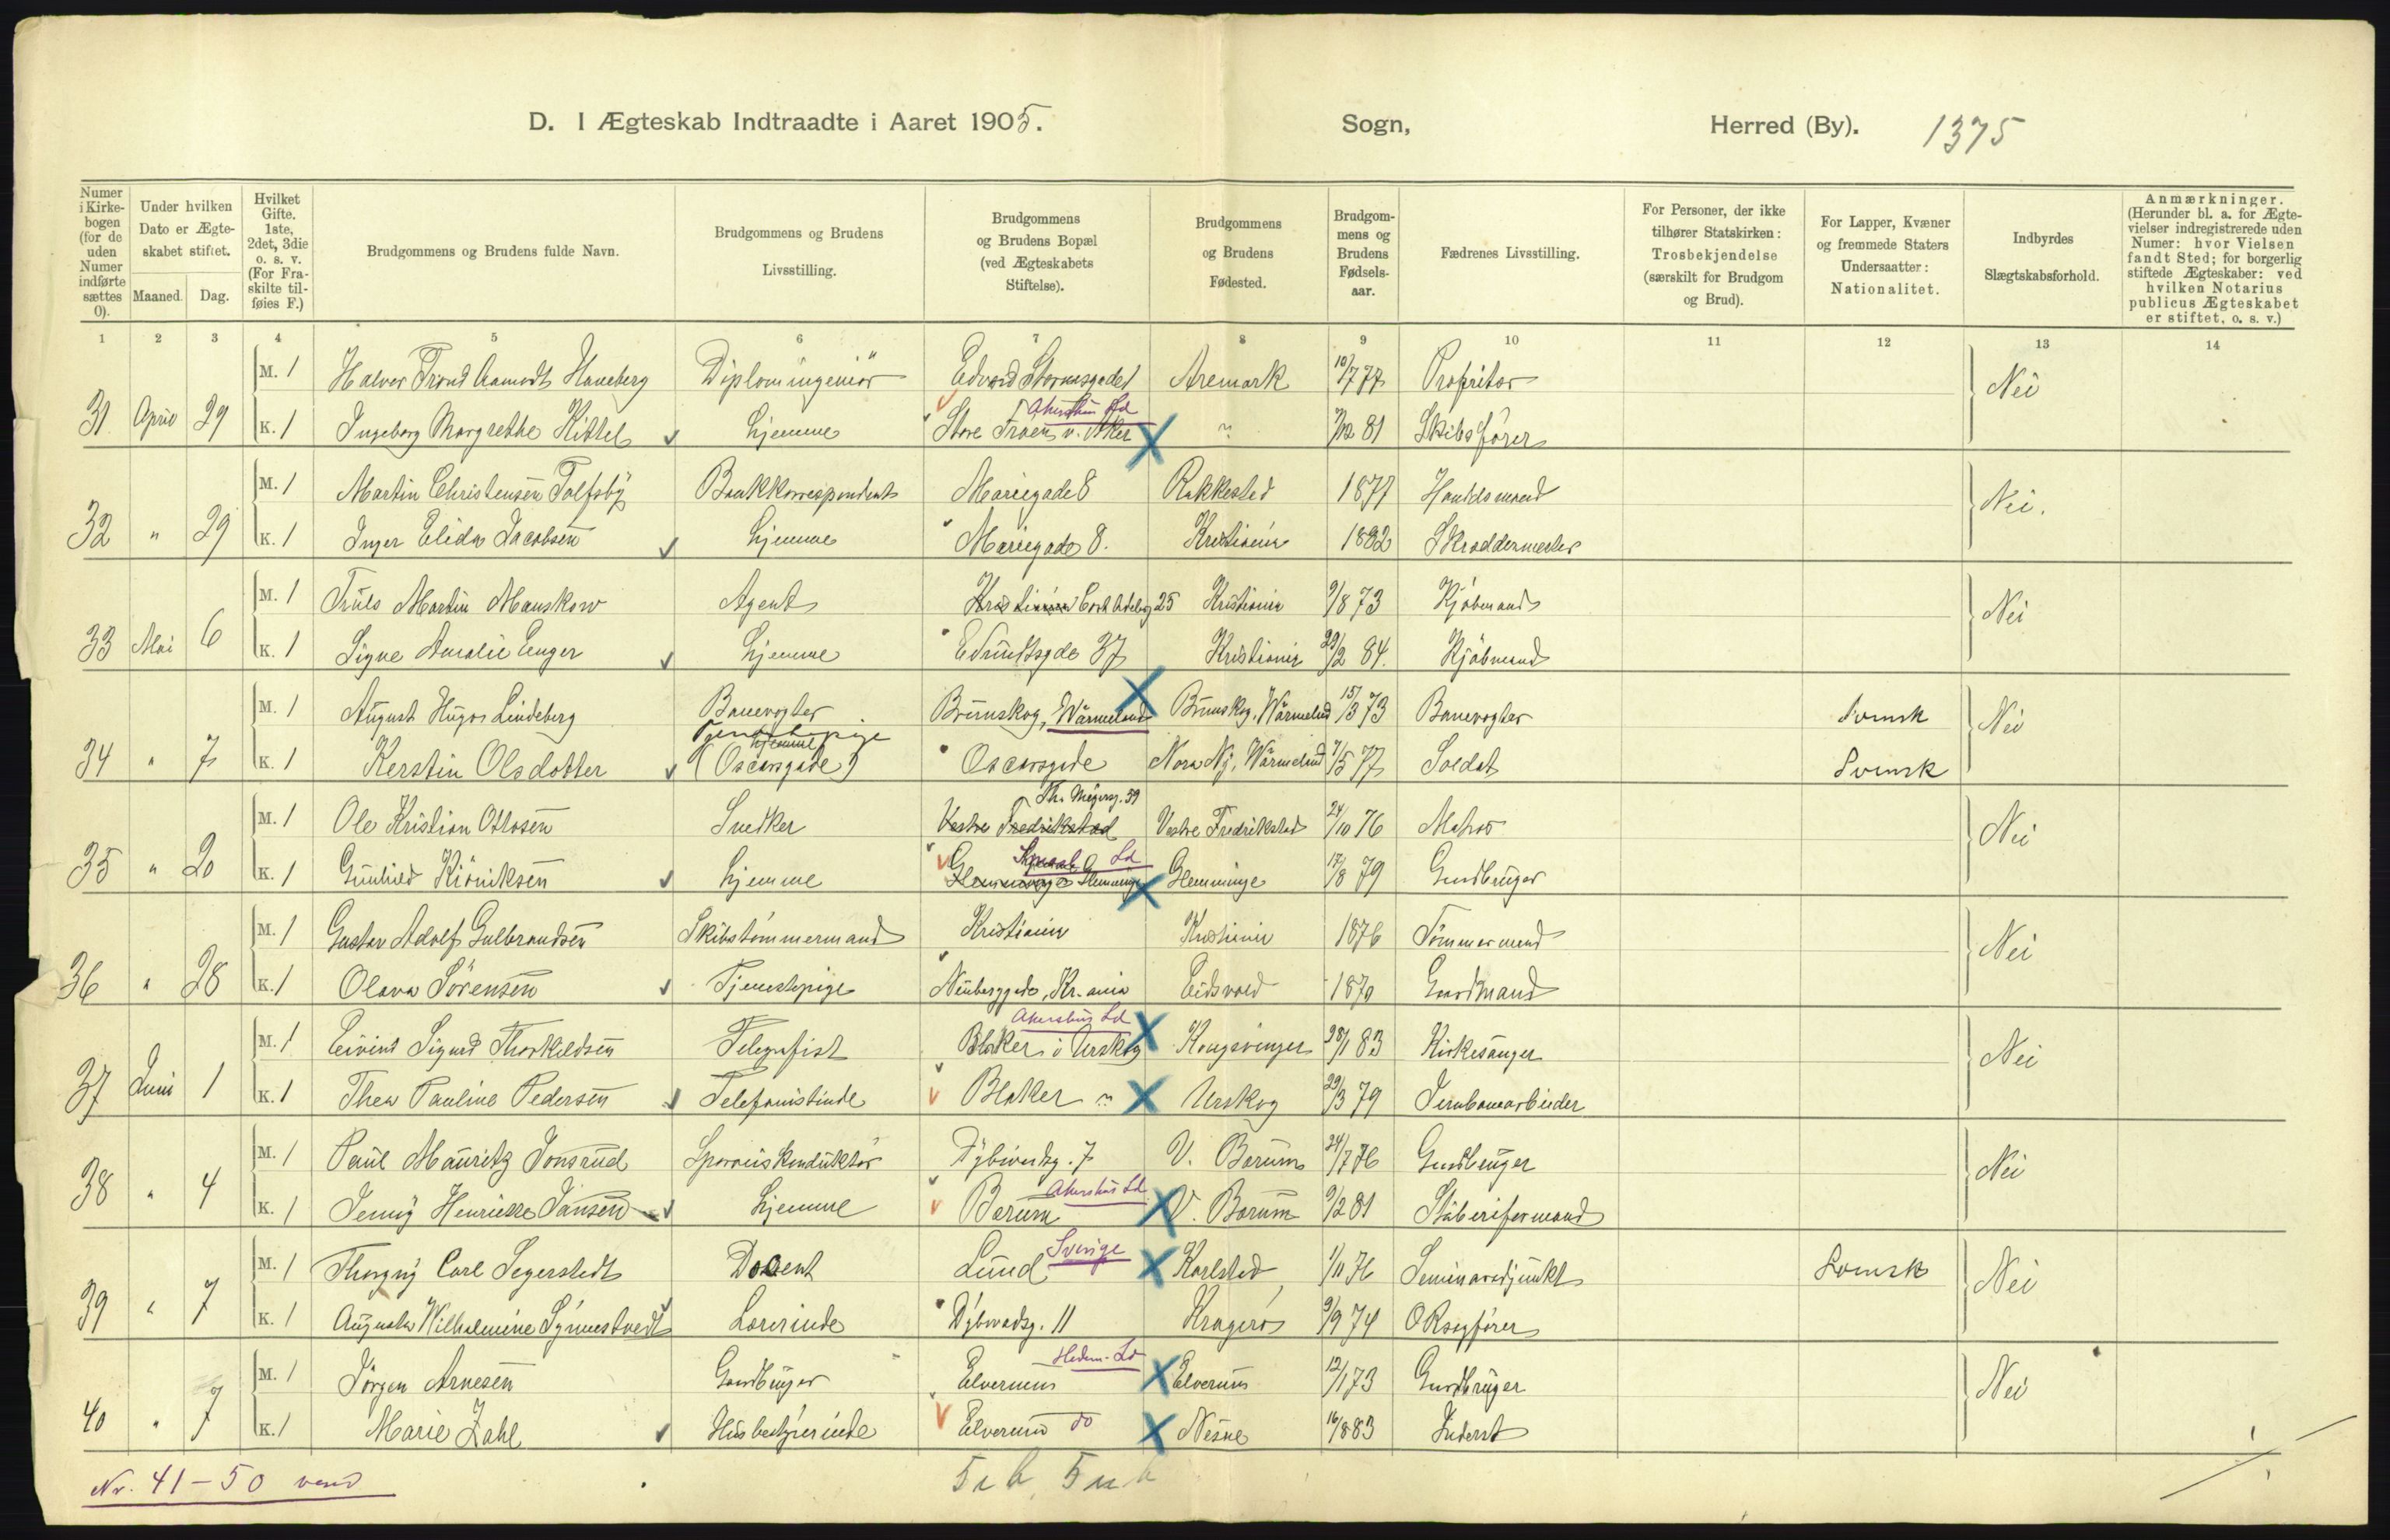 D. I Ægteskab Indtraadte i Aaret 1905. Sogn, Herred (By). 1375
Numer i Kirkebogen (for de uden Numer indførte sættes 0).
Under hvilken Dato er Ægteskabet stiftet.
Maaned. Dag.
Hvilket Gifte, 1ste, 2det, 3die o. s. v. (For Fraskilte tilføies F.)
Brudgommens og Brudens fulde Navn.
Brudgommens og Brudens Livsstilling.
Brudgommens og Brudens Bopæl (ved Ægteskabets Stiftelse).
Brudgommens og Brudens Fødested.
Brudgommens og Brudens Fødselsaar.
Fædrenes Livsstilling.
For Personer, der ikke tilhører Statskirken: Trosbekjendelse (særskilt for Brudgom og Brud).
For Lapper, Kvæner og fremmede Staters Undersaatter: Nationalitet.
Indbyrdes Slægtskabsforhold.
Anmærkninger. (Herunder bl. a. for Ægtevielser indregistrerede uden Numer: hvor Vielsen fandt Sted; for borgerlig stiftede Ægteskaber: ved hvilken Notarius publicus Ægteskabet er stiftet, o. s. v.)
1 2 3 4 5 6 7 8 9 10 11 12 13 14
M. 1 Halvor Trond Aamodt Haneberg Diplomingeniør Edvard Stormsgade 1 Aremark 10/7 77 Propritær Nei
Akershus Ld
31 April 29 K. 1 Ingeborg Margrethe Kittel hjemme Store Froen v. Aker " 81 Skibsfører
M. 1 Martin Christensen Tolfsby Bankkorrespondent Mariegade 8 Rakkestad 1877 Handelsmand Nei.
32 " 29 K. 1 Inger Elida Jacobsen hjemme Mariegade 8. Kristiania 1882 Skræddermester
M. 1 Truls Martin Manskow Agent Kristiania Cort Adelersg 25 Kristiania 9/8 73 Kjøbmand Nei
33 Mai 6 K. 1 Signe Amalie Enger hjemme 37 Kristiania 29/2 84. Kjøbmand
M. 1 August Hugo Lindeberg Banevogter Brunskog, Wärmeland Brunskog, Wärmelnd 15/3 73 Banevogter Svensk Nei
Tjenestepige
hjemme
34 " 7 K. 1 Kerstin Olsdotter (Oscarsgade) Oscarsgade Nora Ny, Wärmelnd 7/5 77 Soldat Svensk
Th. Meyersg. 59
M. 1 Ole Kristian Ottosen Snedker Vestre Fredrikstad Vestre Fredrikstad 24/10 76 Matros Nei
Smaal. Ld
35 " 20 K. 1 Gunhild hjemme Glemminge Glemminge Glemminge 17/8 79 Gaardbruger
M. 1 Gustav Adolf Gulbrandsen Skibstømmermand Kristiania Kristiania 1876 Tømmermand Nei
36 " 28 K. 1 Olava Sørensen Tjenestepige Neuberggade, Kr.ania Eidsvold 1870 Gaardmand
Akershus Ld
M. 1 Eivind Sigurd Thorkildsen Telegrafist Blaker i Urskog Kongsvinger 28/1 83 Kirkesanger Nei
37 Juni 1 K. 1 Thea Pauline Pedersen Telefonistinde Blaker " Urskog 29/3 79 Jernbanearbeider
M. 1 Paul Mauritz Jonsrud Sporveiskonduktør Dybwadsg. 7 V. Bærum 24/7 76 Gaardbruger Nei
Akershus Ld
38 " 4 K. 1 Jenny Henriette Jansen hjemme Bærum V. Bærum 9/2 81 Støberiformand
Sverige
M. 1 Thorgny Carl Segerstedt Docent Lund Karlstad 1/11 76 Seminaradjunkt Svensk Nei
39 " 7 K. 1 Augusta Wilhelmine Synnestvedt Lærerinde Dybwadsg. 11 Kragerø 9/9 74 ORsagfører
Hedem. Ld
M. 1 Jørgen Arnesen Gaardbruger Elverum Elverum 12/1 73 Gaardbruger Nei
40 " 7 K. 1 Marie Zahl Husbestyrerinde Elverum do Nesne 16/8 83 Inderst
Nr. 41-50 vend